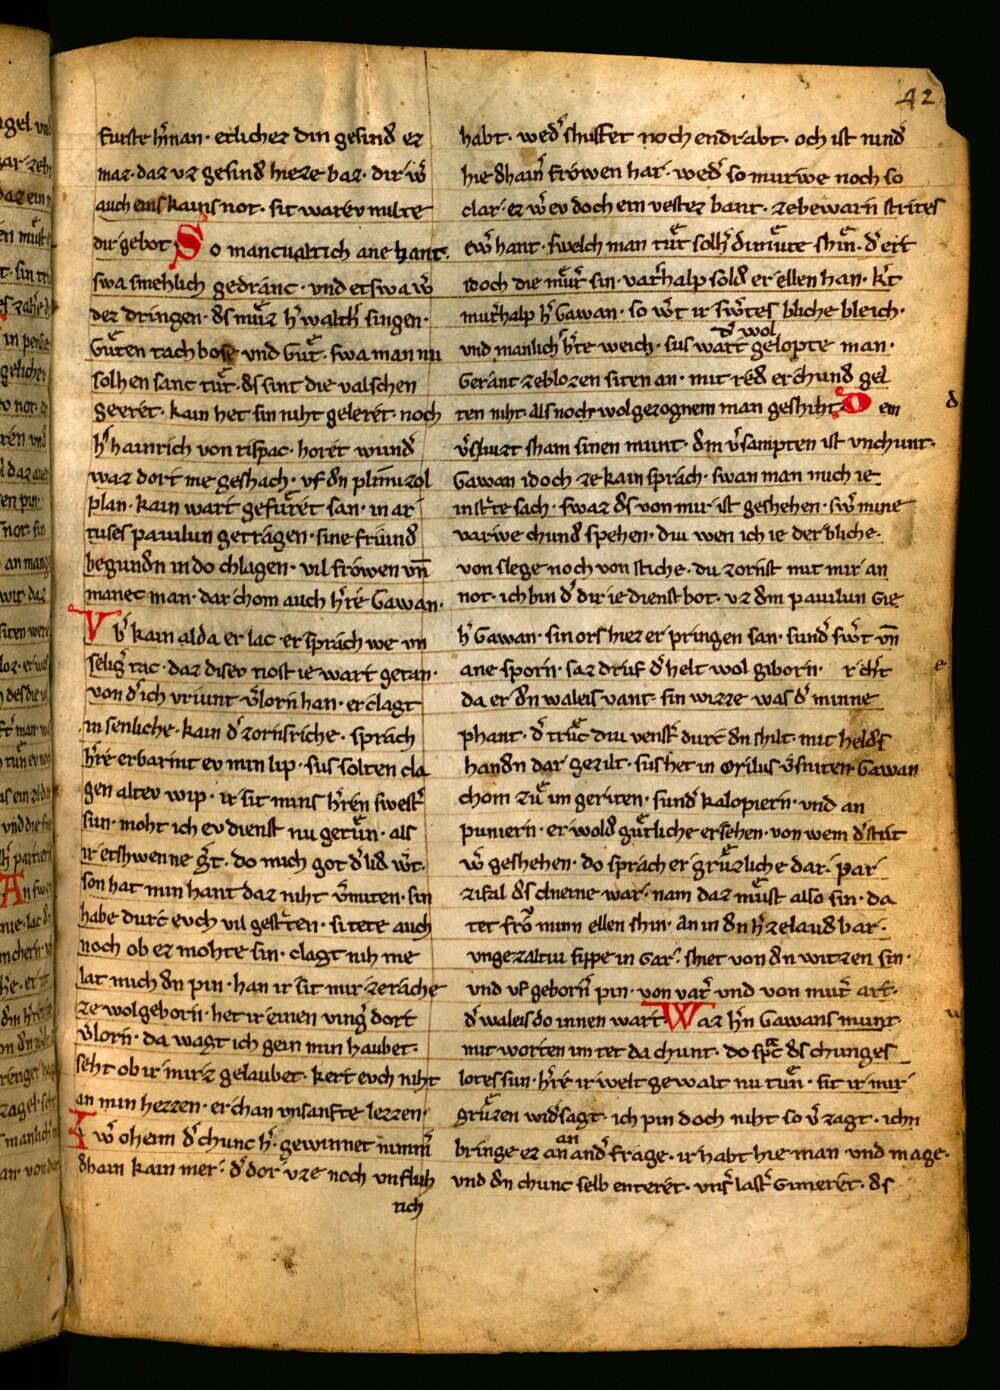 42
furste h͛man · etlicher din gesind er
maz · daz vz gesind hieze baz · dir w͛
auch eins kains not · sit warev milte
dir gebot So mancualtich ane hant ·
swa smehlich gedranc · und etswa w͛
der dringen · ds muͤz h͛ walth͛ singen ·
Guͤten tach bose und Guͤt · swa man nu
solhen sanc tuͤt · ds sint die valschen
geeret · kain het sin niht geleret · noch
h͛ hainrich von rispac · horet wund͛
waz dort me geshach · vf dn plimizol
plan · kain wart gefuͤret san · in ar
tuses pauilun getragen · sine friund
begundn in do chlagen · vil frowen vn̄
manec man · dar chom auch h͛re Gawan ·
Vb͛ kain alda er lac · er sprach we vn
selig͛ tac · daz disev tiost ie wart getan ·
von d͛ ich vriunt v͛lorn han · er clagt
in senliche · kain d͛ zornsriche · sprach
h͛re erbarmt ev min lip · sus solten cla
gen altev wip · ir sit mins h͛ren swest͛
sun · moht ich ev dienst nu getuͤn · als
ir etshwenne g͛t · do mich got d͛ lid w͛t ·
son hat min hant daz niht v͛miten · sin
habe durc evch vil gest͛ten · si tete auch
noch ob ez mohte sin · clagt nih me
lat mich dn pin · han ir sit mir zerache
ze wolgeborn · het ir einen ving͛ dort
v͛lorn · da wagt ich gein min haubet ·
seht ob ir mirz gelaubet · kert evch niht
an min herzen · er chan unsanfte lezzen ·
Iw͛ oheim d͛ chunc h͛ · gewinnet nimm͛
dhain kain mer · d͛ dor vze noch unfluh
tich
habt · wed͛ shuffet noch endrabt · och ist nind͛
hie dhain͛ frowen har · wed͛ so murwe noch so
clar · ez w͛ ev doch ein vestez bant · zebewarn strites
ew͛ hant · swelch man tuͤt solh͛ dimuͤte shin · d͛ eit
idoch die muͤt͛ sin · vat͛halp sold er ellen han · k͛t
mut͛halp h͛ Gawan · so w͛t ir sw͛tes bliche bleich ·
und manlich h͛te weich · sus wart d͛ wol gelopte man ·
Gerant zeblozen siten an · mit red er chund gel
ten niht · als noch wolgezognem man geshiht · D em
v͛shuzt sham sinen munt · dm v͛sampten ist vnchunt ·
Gawan idoch · ze kain sprach · swan man mich ie
in st͛te sach · swaz ds von mir ist geshehen · sw͛ mine
varwe chund spehen · diu wen ich ie derbliche ·
von slege noch von stiche · du zornst mit mir an
not · ich bin d͛ dir ie dienst bot · vz dm pauilun Gie
h͛ Gawan · sin ors hiez er pringen san · sund͛ sw͛t vn̄
ane sporn · saz druf d͛ helt wol giborn · r cht
da er dn waleis vant · sin wizze was d͛ minne
phant · d͛ truͤc diu venst͛ durc dn shilt · mit helds
handn dar gezilt · sus het in Orilus v͛sniten · Gawan
chom zuͤ im geriten · sund͛ kalopiern · und an
puniern · er wold guͤtliche ersehen · von wem d͛ strit
w͛ geshehen · do sprach er gruͤzliche dar · par
zifal ds chleine war · nam daz muͤst also sin · da
tet fro minn ellen shin · an in dn h͛zelaud bar ·
ungezaltiu sippe in Gar · shiet von dn witzen sin ·
und uf geborn͛ pin · von vat͛ und von mut͛ art ·
d͛ waleis do innen wart Waz h͛n Gawans munt
mit worten im tet da chunt · do sp͛c ds chunges
lotes sun · h͛re ir welt gewalt nu tuͤn · sit ir mir
gruͤzen wid͛sagt · ich pin doch niht so v͛zagt · ichn
bringe ez an an and͛ frage · ir habt hie man und mage ·
und dn chunc selb enteret · uns͛ last͛ Gimeret · ds